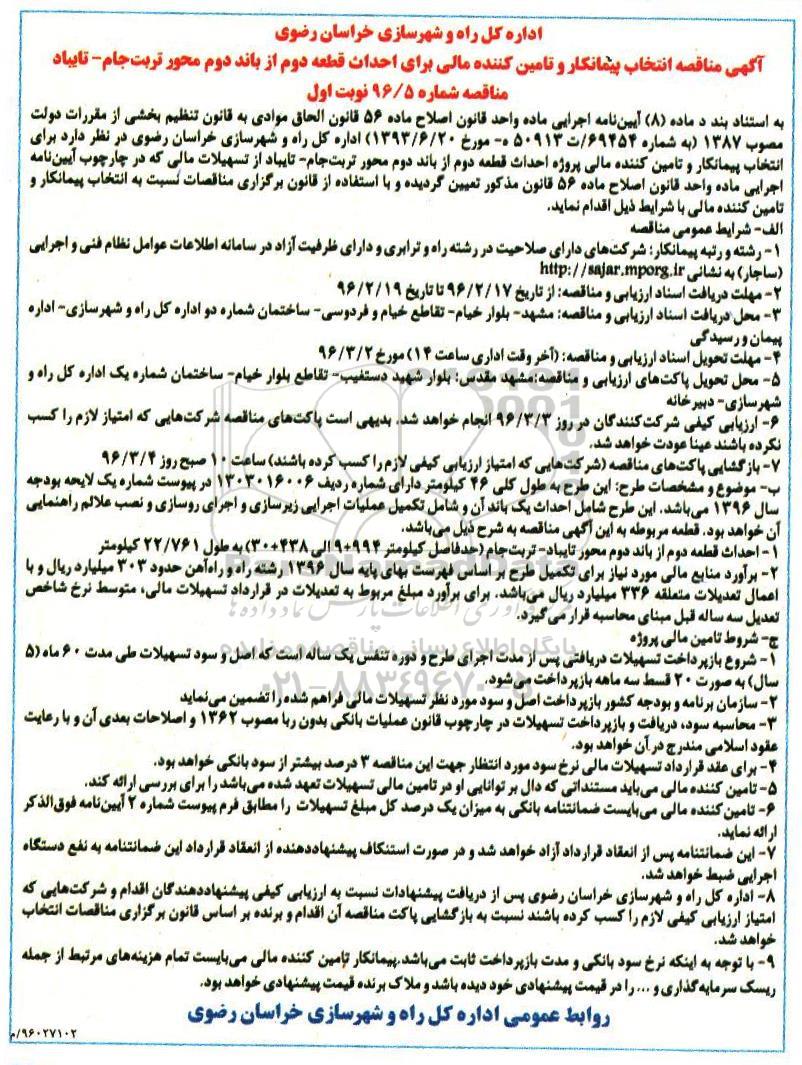 اداره کل راه و شهرسازی خراسان رضوی
آگهی مناقصه انتخاب پیمانکار و تامین کننده مالی برای احداث قطعه دوم از باند دوم محور تربت‌جام- تایباد
مناقصه شماره ۹۶/۵ نوبت اول
به استناد بند د ماده (۸) آیین‌نامه اجرایی ماده واحد قانون اصلاح ماده ۵۶ قانون الحاق موادی به قانون تنظیم بخشی از مقررات دولت
مصوب ۱۳۸۷ (به شماره ۶۹۴۵۴/ت ۵۰۹۱۳ ه- مورخ ۱۳۹۳/۶/۲۰) اداره کل راه و شهرسازی خراسان رضوی در نظر دارد برای
انتخاب پیمانکار و تامین کننده مالی پروژه احداث قطعه دوم از باند دوم محور تربت‌جام- تایباد از تسهیلات مالی که در چارچوب آیین‌نامه
اجرایی ماده واحد قانون اصلاح ماده ۵۶ قانون مذکور تعیین گردیده و با استفاده از قانون برگزاری مناقصات نسبت به انتخاب پیمانکار و
تامین کننده مالی با شرایط ذیل اقدام نماید.
الف- شرایط عمومی مناقصه
۱- رشته و رتبه پیمانکار: شرکت‌های دارای صلاحیت در رشته راه و ترابری و دارای ظرفیت آزاد در سامانه اطلاعات عوامل نظام فنی و اجرایی
(ساجار) به نشانی http://sajar.mporg.ir
۲- مهلت دریافت اسناد ارزیابی و مناقصه: از تاریخ ۹۶/۲/۱۷ تا تاریخ ۹۶/۲/۱۹
۳- محل دریافت اسناد ارزیابی و مناقصه: مشهد- بلوار خیام- تقاطع خیام و فردوسی- ساختمان شماره دو اداره کل راه و شهرسازی- اداره
پیمان و رسیدگی
۴- مهلت تحویل اسناد ارزیابی و مناقصه: (آخر وقت اداری ساعت ۱۴) مورخ ۹۶/۳/۲
۵- محل تحویل پاکت‌های ارزیابی و مناقصه:مشهد مقدس: بلوار شهید دستغیب- تقاطع بلوار خیام- ساختمان شماره یک اداره کل راه و
شهرسازی- دبیرخانه
۶- ارزیابی کیفی شرکت‌کنندگان در روز ۹۶/۳/۳ انجام خواهد شد. بدیهی است پاکت‌های مناقصه شرکت‌هایی که امتیاز لازم را کسب
نکرده باشند عینا عودت خواهد شد.
۷- بازگشایی پاکت‌های مناقصه (شرکت‌هایی که امتیاز ارزیابی کیفی لازم را کسب کرده باشند) ساعت ۱۰ صبح روز ۹۶/۳/۴
ب- موضوع و مشخصات طرح: این طرح به طول کلی ۴۶ کیلومتر دارای شماره ردیف ۱۳۰۳۰۱۶۰۰۶ در پیوست شماره یک لایحه بودجه
سال ۱۳۹۶ می‌باشد. این طرح شامل احداث یک باند آن و شامل تکمیل عملیات اجرایی زیرسازی و اجرای روسازی و نصب علائم راهنمایی
آن خواهد بود. قطعه مربوطه به این آگهی مناقصه به شرح ذیل می‌باشد.
۱- احداث قطعه دوم از باند دوم محور تایباد- تربت‌جام (حدفاصل کیلومتر ۹+۹۹۴ الی ۳۰+۴۳۸) به طول ۲۲/۷۶۱ کیلومتر
۲- برآورد منابع مالی مورد نیاز برای تکمیل طرح بر اساس فهرست بهای پایه سال ۱۳۹۶ رشته راه و راه‌آهن حدود ۳۰۳ میلیارد ریال و با
اعمال تعدیلات متعلقه ۳۳۶ میلیارد ریال می‌باشد. برای برآورد مبلغ مربوط به تعدیلات در قرارداد تسهیلات مالی، متوسط نرخ شاخص
تعدیل سه ساله قبل مبنای محاسبه قرار می‌گیرد.
ج- شروط تامین مالی پروژه
۱- شروع بازپرداخت تسهیلات دریافتی پس از مدت اجرای طرح و دوره تنفس یک ساله است که اصل و سود تسهیلات طی مدت ۶۰ ماه (۵
سال) به صورت ۲۰ قسط سه ماهه بازپرداخت می‌شود.
۲- سازمان برنامه و بودجه کشور بازپرداخت اصل و سود مورد نظر تسهیلات مالی فراهم شده را تضمین می‌نماید
۳- محاسبه سود، دریافت و بازپرداخت تسهیلات در چارچوب قانون عملیات بانکی بدون ربا مصوب ۱۳۶۲ و اصلاحات بعدی آن و با رعایت
عقود اسلامی مندرج در آن خواهد بود.
۴- برای عقد قرارداد تسهیلات مالی نرخ سود مورد انتظار جهت این مناقصه ۳ درصد بیشتر از سود بانکی خواهد بود.
۵- تامین کننده مالی می‌باید مستنداتی که دال بر توانایی او در تامین مالی تسهیلات تعهد شده می‌باشد را برای بررسی ارائه کند.
۶- تامین کننده مالی می‌بایست ضمانتنامه بانکی به میزان یک درصد کل مبلغ تسهیلات را مطابق فرم پیوست شماره ۲ آیین‌نامه فوق‌الذکر
ارائه نماید.
۷- این ضمانتنامه پس از انعقاد قرارداد آزاد خواهد شد و در صورت استنکاف پیشنهاددهنده از انعقاد قرارداد این ضمانتنامه به نفع دستگاه
اجرایی ضبط خواهد شد.
۸- اداره کل راه و شهرسازی خراسان رضوی پس از دریافت پیشنهادات نسبت به ارزیابی کیفی پیشنهاددهندگان اقدام و شرکت‌هایی که
امتیاز ارزیابی کیفی لازم را کسب کرده باشند نسبت به بازگشایی پاکت مناقصه آن اقدام و برنده بر اساس قانون برگزاری مناقصات انتخاب
خواهد شد.
۹- با توجه به اینکه نرخ سود بانکی و مدت بازپرداخت ثابت می‌باشد.پیمانکار تامین کننده مالی می‌بایست تمام هزینه‌های مرتبط از جمله
ریسک سرمایه‌گذاری و ... را در قیمت پیشنهادی خود دیده باشد و ملاک برنده قیمت پیشنهادی خواهد بود.
روابط عمومی اداره کل راه و شهرسازی خراسان رضوی
۹۶۰۲۷۱۰۲/م
پایگاه اطلاع رسانی مناقصه و مزایده
۰۲۱-۸۸۳۴۹۶۷۰-۵